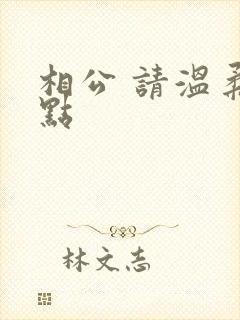 相公 請溫柔
點
林文志